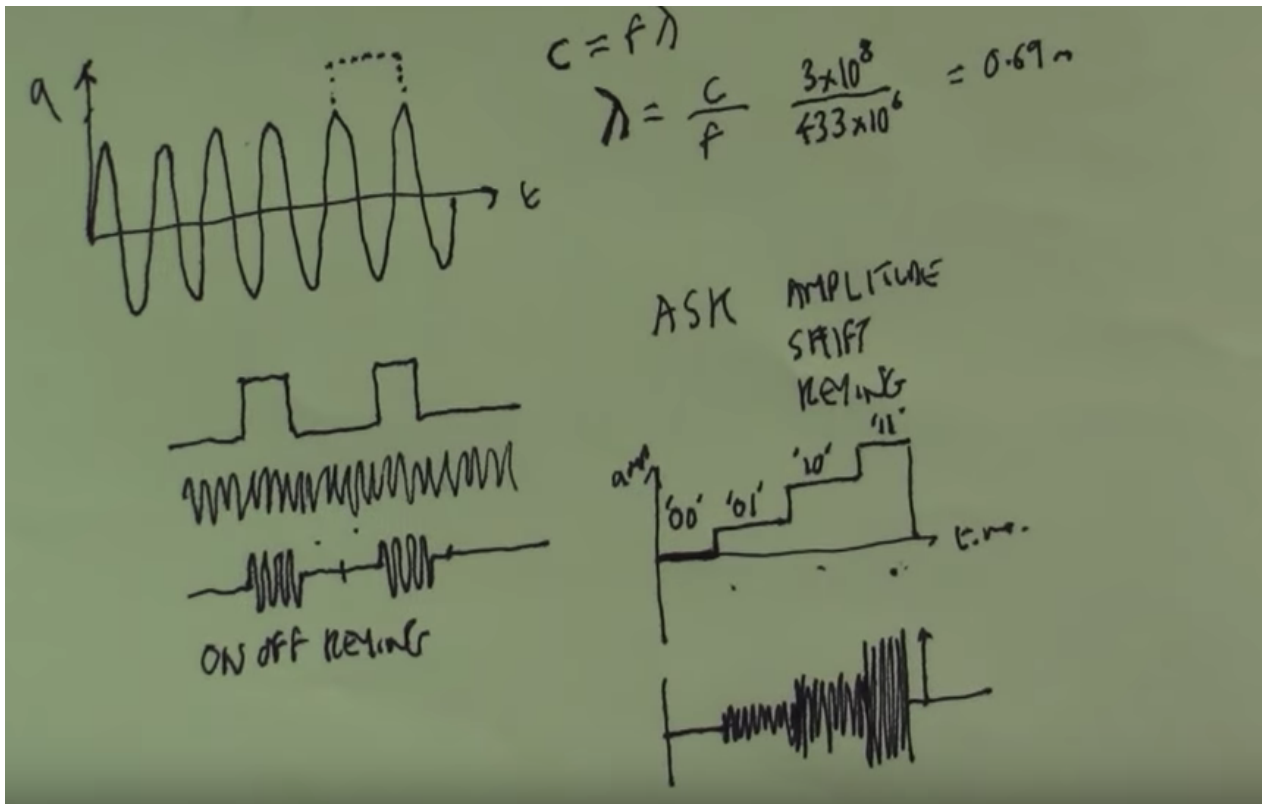 a
t
c = fλ
λ = c/f 3×10⁸/433×10⁶ = 0.69m
ASK AMPLITUDE
SHIFT
KEYING
ON OFF KEYING
amp
'00' '01' '10' '11'
time